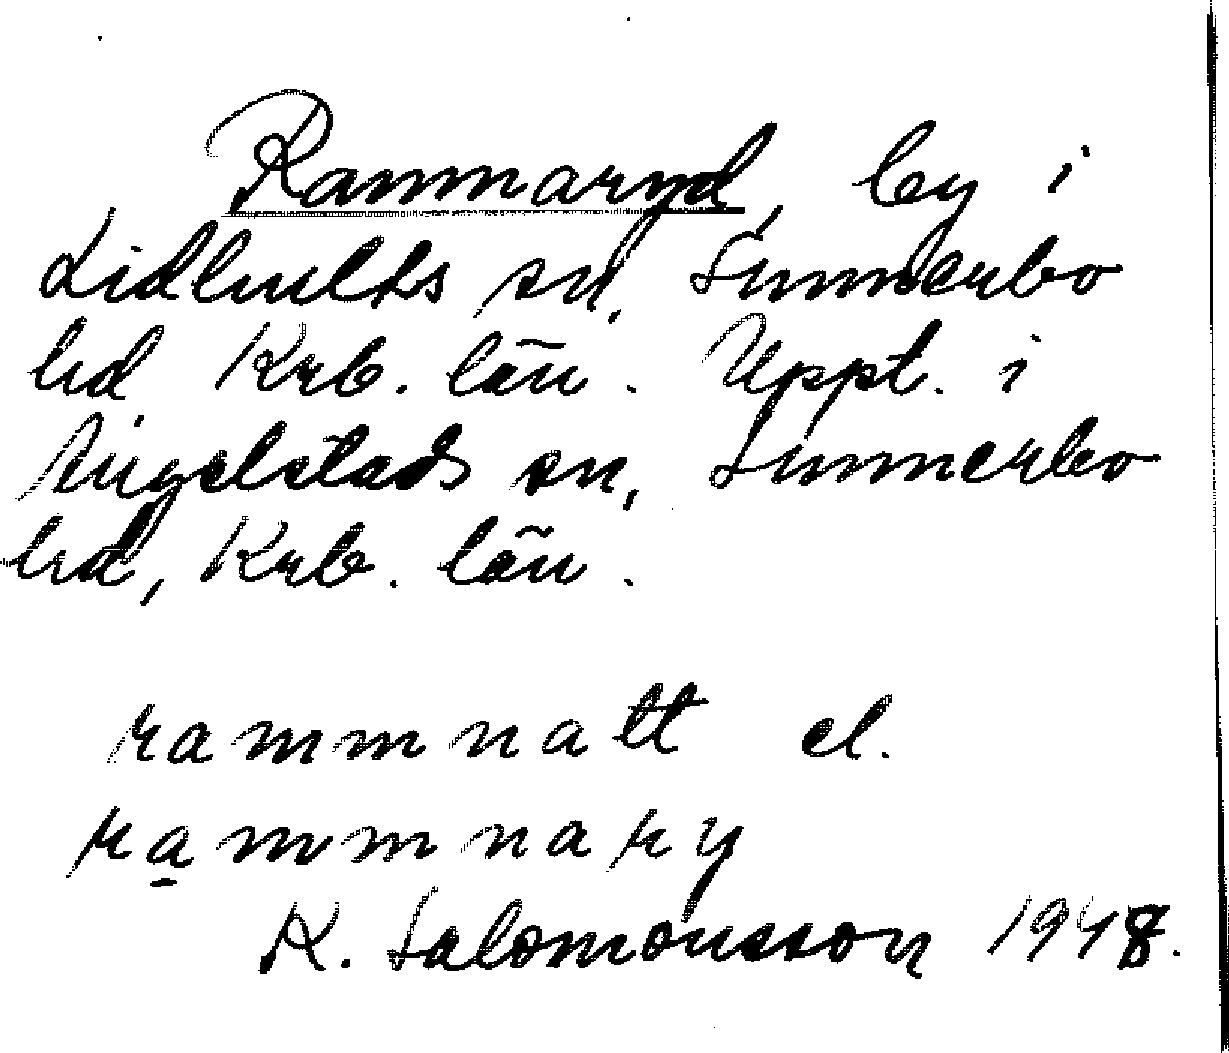 Rammaryd, by i
Lidhults sn, Sunnerbo
hd Krb. län. Uppt. i
Angelstads sn, Sunnerbo
hd, Krb. län.
rammnatt el.
rammnary
R. Salomonsson 1948.